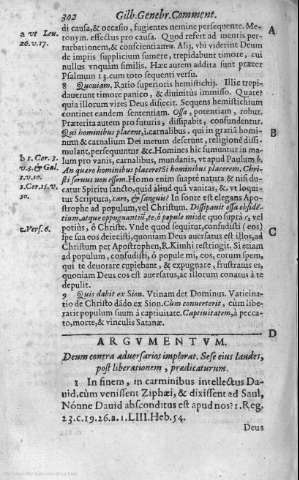 302 Gilb. Genebr. Comment.
di causa, & occasio, fugientes nemine persequente. Me-
tonym. effectus pro causa. Quod refert ad mentis per-
turbationem, & conscientiam. Alij, vbi viderint Deum
a vt Leu.
26. v. 17.
A
de impiis supplicium sumere, trepidabunt timore, cui
nullus vnquam similis. Hæc autem addita sunt præter
Psalmum 13. cum toto sequenti versu.
8 Quoniam. Ratio superioris hemistichij. Illic trepi-
dauerunt timore panico, & diuinitus immisso. Quare?
quia illorum vires Deus disiecit. Sequens hemistichium
continet eandem sententiam. Ossa, potentiam, robur.
Præterita autem pro futuris, dissipabit, confundentur.
Qui hominibus placent, i. carnalibus, qui in gratiā homi-
B
num & carnalium Dei metum deserunt, religionē dissi-
mulant, persequuntur &c. Homines hîc sumuntur in ma-
lum pro vanis, carnalibus, mundanis, vt apud Paulum b.
b 1. Cor. 3.
v. 3. & Gal.
1. v. 10.
1. Cor. 15. v.
50.
An quæro hominibus placere? si hominibus placerem, Chri-
sti seruus non essem. Homo enim suapte natura & nisi do-
catur Spiritu sancto, quid aliud quā vanitas, &, vt loqui-
tur Scriptura, caro, & sanguis? In fonte est elegans Apo-
strophe ad populum, vel Christum. Dissipauit ossa obsidē-
tium, atque oppugnantiū, te, ô popule mi: de quo suprà c, vel
c Vers. 6.
C
potiùs, ô Christe. Vnde quod sequitur, confudisti (eos)
ipse sua eos deiecisti, quoniam Deus auersatus est illos, ad
Christum per Apostrophen, R. Kimhi restringit. Si etiam
ad populum, confudisti, ô popule mi, eos, eorum spem,
qui te deuorare cupiebant, & expugnate, frustratus es,
quoniam Deus eos est auersatus, ac illorum conatus à te
depulit.
9 Quis dabit ex Sion. Vtinam det Dominus. Vaticina-
tio de Christo dādo ex Sion. Cùm conuerterit, cùm libe-
rarit populum suum à captiuitate. Captiuitatem, à pecca-
to, morte, & vinculis Satanæ.
D
ARGVMENTVM.
Deum contra aduersarios implorat. Sese eius laudes,
post liberationem, prædicaturum.
1 In finem, in carminibus intellectus Da-
uid. cùm venissent Ziphæi, & dixissent ad Saul,
Nónne Dauid absconditus est apud nos? 1. Reg.
23. c. 19. 26. a. 1. LIII. Heb. 54.
Deus